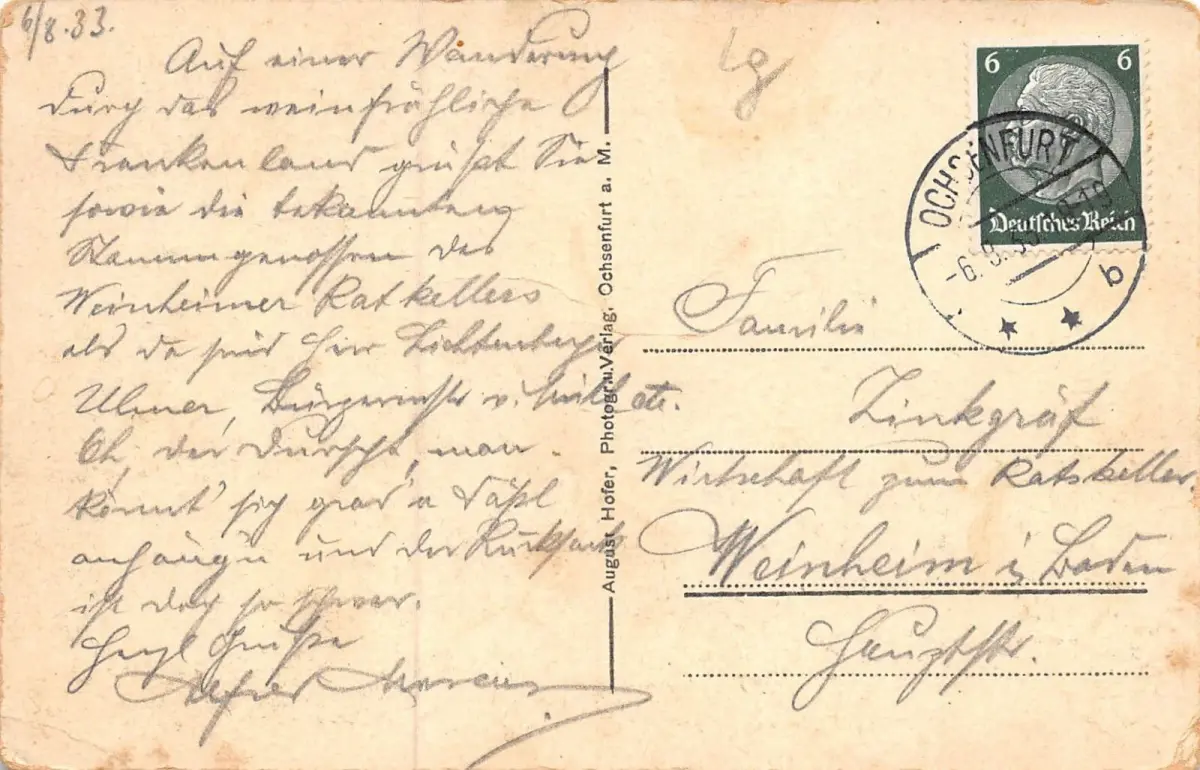 6/8.33.
Auf einer Wanderung
durch das weinfröhliche
Frankenland grüßt Sie
sowie die bekannten
Stammgenossen des
Weinheimer Ratkellers
als da sind Herr Lichtenberger
Ulmer, Bürgermstr v. etc.
Oh, der Durscht, man
könnt' sich grad' a Fäßl
anhänge und der Rucksack
ist doch so schwer.
Herzl Grüße
Alfred
August Hofer, Photogr.u.Verlag, Ochsenfurt a. M.
6 6
Deutsches Reich
OCHSENFURT
-6.8.33
b
Familie
Zinkgräf
Wirtschaft zum Ratskeller.
Weinheim i Baden
Hauptstr.